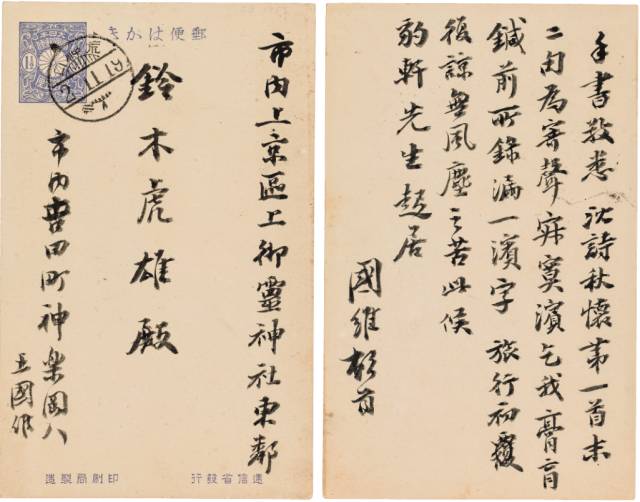 郵便はかき
市内上京區上御靈神社東鄰
鈴木虎雄殿
市内吉田町神楽岡八
王國維
遞信省發行
印刷局製造
手書敬悉 沈詩秋懷第一首末
二句為寄聲寂寞濱乞我膏肓
鍼前所錄漏一濱字 旅行初覆
後諒無風塵之苦此候
豹軒先生起居
國維頓首